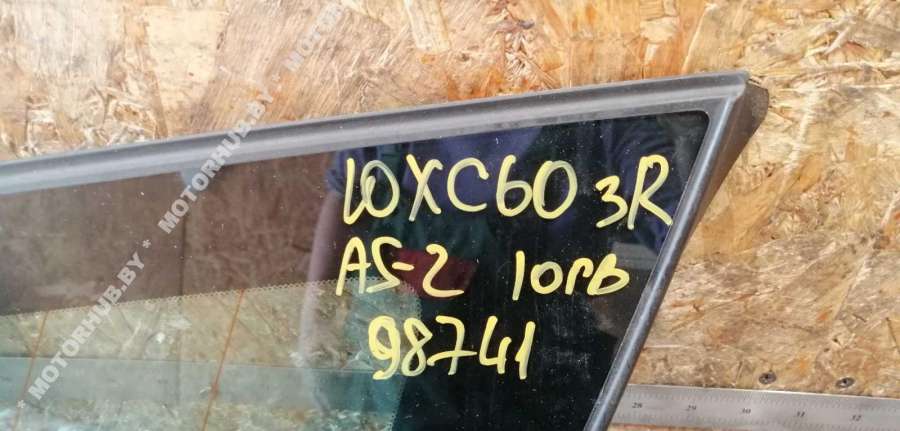 * MOTORHUB.BY * MOTORHUB.BY * MOTORHUB.BY
LOXC60 3R
AS-2 10гв
98741
28 29 30 31 32